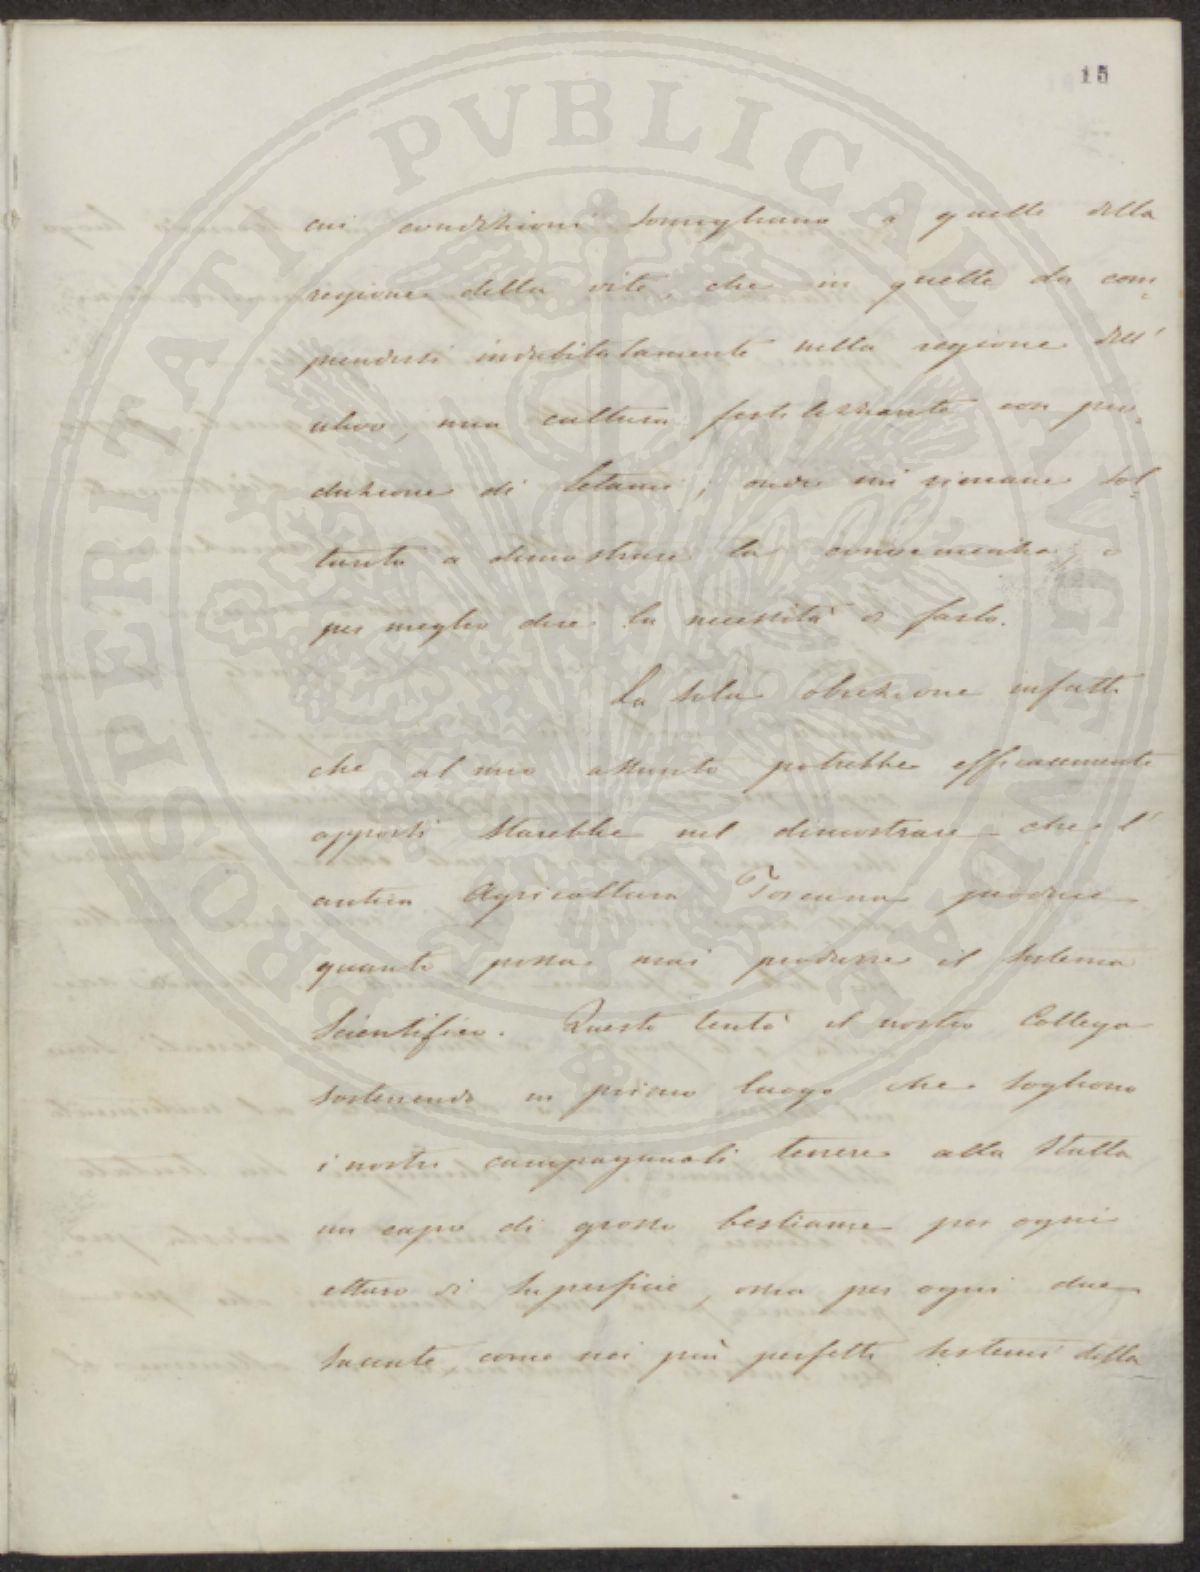 15
cui condizioni somigliano a quelle della
regione della vite, che in quelle da com-
prendersi indubitatamente nella regione dell'
ulivo, una cultura fertilizzante con pro-
duzione di letami; onde mi rimane sol
tanto a dimostrare la convenienza, o
per meglio dire la necessità di farlo.
La sola obiezione infatti
che al mio assunto potrebbe efficacemente
opporsi starebbe nel dimostrare che l'
antica Agricoltura Toscana produce
quanto possa mai produrre il sistema
scientifico. Questo tentò il nostro Collega
sostenendo in primo luogo che sogliono
i nostri campagnuoli tenere alla stalla
un capo di grosso bestiame per ogni
ettaro di superficie, ossia per ogni due
saccate, come nei più perfetti sistemi della
PROSPERITATI PVBLICAE AVGENDAE